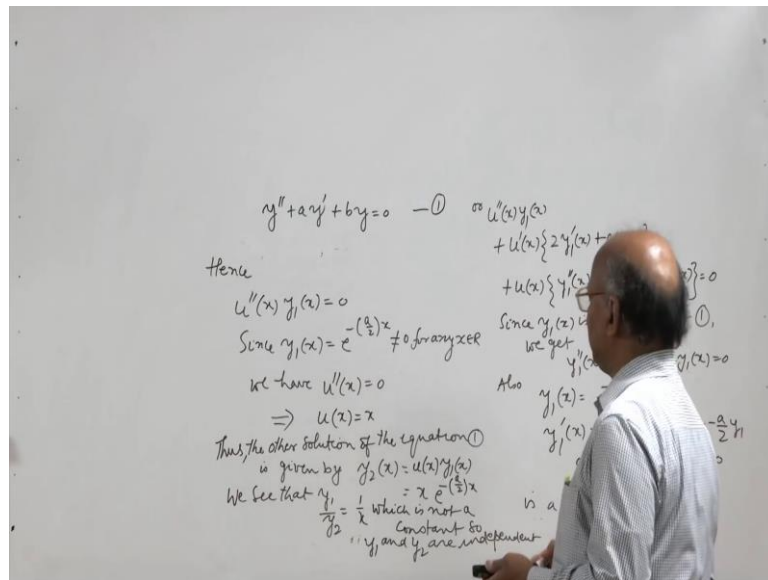 y'' + ay' + by = 0 — ①
Hence
u''(x) y₁(x) = 0
Since y₁(x) = e^{-(a/2)x} ≠ 0 for any x∈R
we have u''(x) = 0
⇒ u(x) = x
Thus, the other solution of the equation ①
is given by y₂(x) = u(x) y₁(x)
= x e^{-(a/2)x}
We see that y₁/y₂ = 1/x which is not a
constant so
y₁ and y₂ are independent
or u''(x) y₁(x)
+ u'(x) { 2y₁'(x) +
+ u(x) { y₁''(x) } = 0
Since y₁(x) is ①,
we get
y₁''(x) y₁(x) = 0
Also y₁(x) =
y₁'(x) -a/2 y₁
0
is a